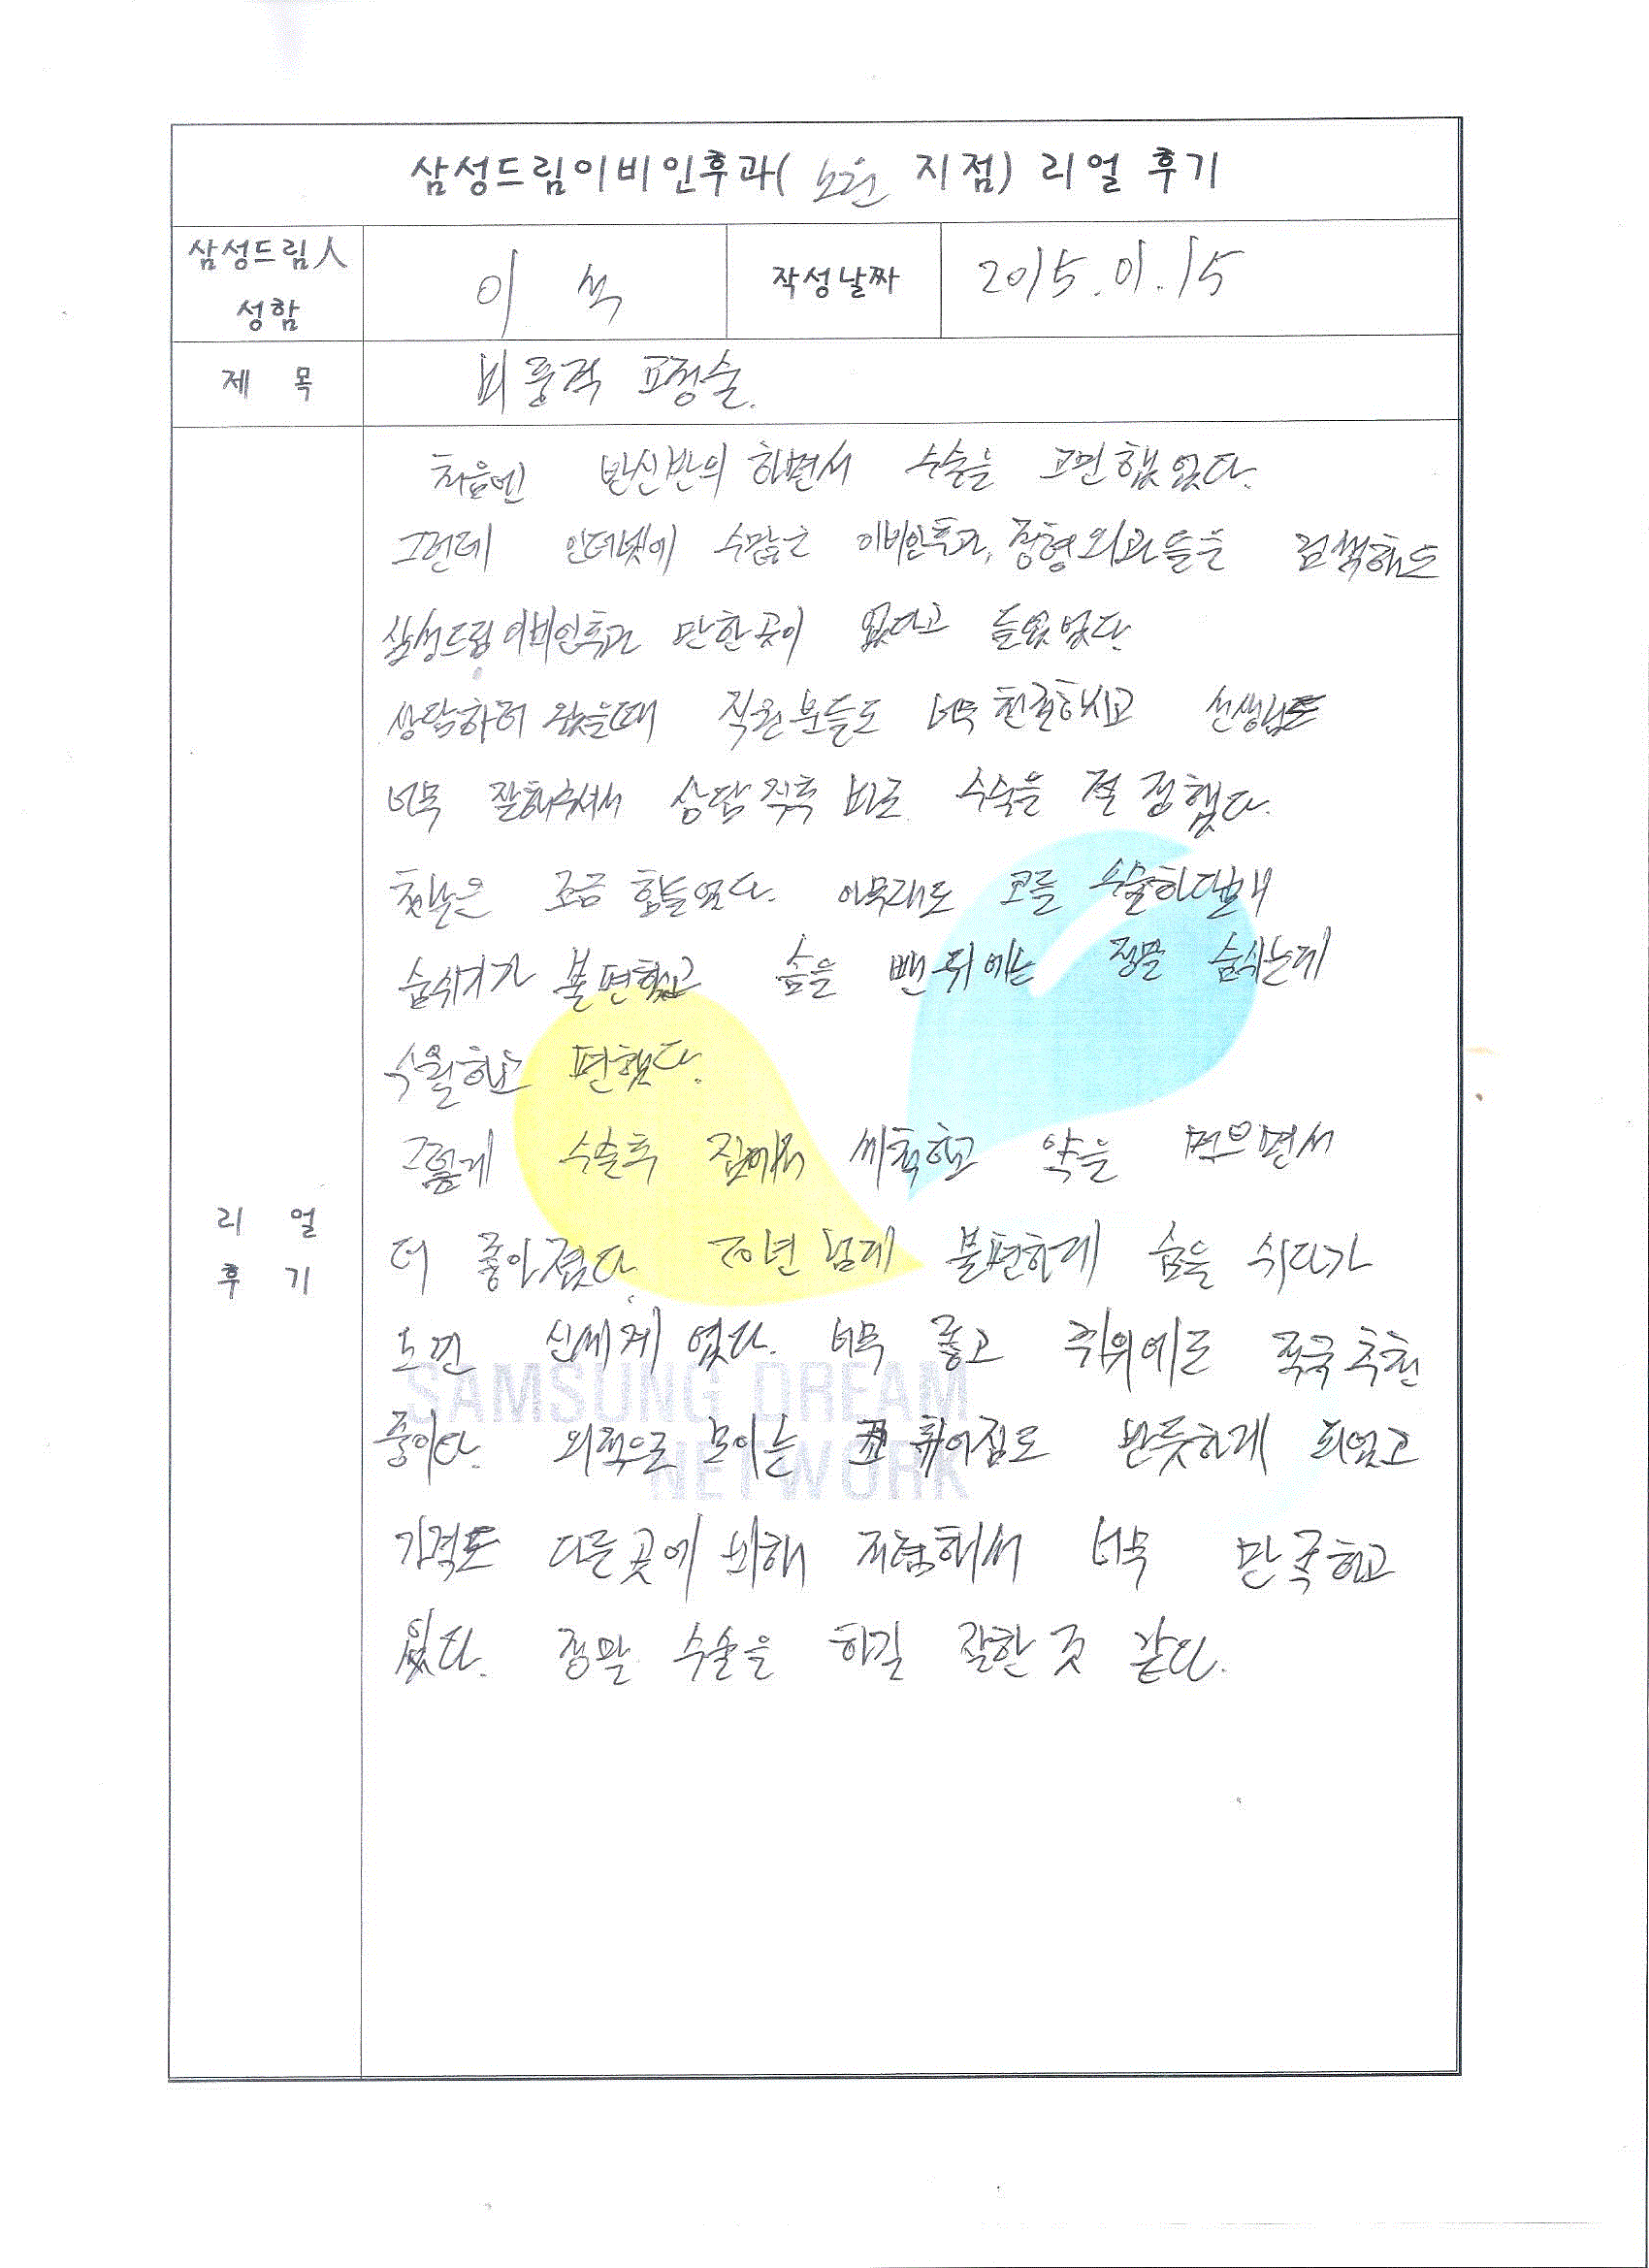 삼성드림이비인후과( 노원 지점) 리얼 후기
삼성드림人
성함
이 석
작성날짜
2015.01.15
제 목
비중격 교정술.
처음엔 반신반의 하면서 수술을 고민했었다.
그런데 인터넷에 수많은 이비인후과, 정형외과들을 검색해도
삼성드림이비인후과 만한곳이 없다고 들었었다.
상담하러 왔을때 직원분들도 너무 친절하시고 선생님도
너무 잘해주셔서 상담직후 바로 수술을 결정했다.
첫날은 조금 힘들었다. 아무래도 코를 수술하다보니
숨쉬기가 불편했고 솜을 뺀 뒤에는 정말 숨쉬는데
수월하고 편했다.
그렇게 수술후 집에서 세척하고 약을 먹으면서
더 좋아졌다. 넘게 불편하게 숨을 쉬다가
느낀 신세계였다. 너무 좋고 주위에도 적극 추천
중이다. 외적으로 보이는 휘어짐도 반듯하게 되었고
가격도 다른곳에 비해 저렴해서 너무 만족하고
있다. 정말 수술을 하길 잘한것 같다.
리 얼
후 기
SAMSUNG DREAM
NETWORK